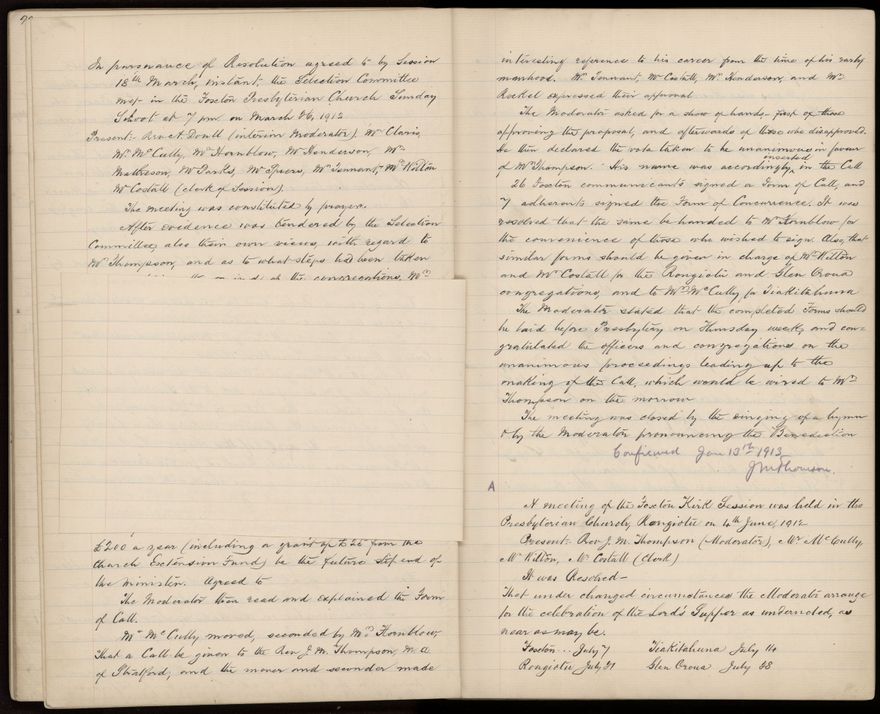 In pursuance of Resolution agreed to by Session
18th March, instant, the Selection Committee
met in the Foxton Presbyterian Church Sunday
School at 7 pm on March 26, 1912
Present:- Rev A. Doull (interim Moderator) Mr Claris,
Mr McCully, Mr Hornblow, Mr Henderson, Mr
Matheson, Mr Parks, Mr Spiers, Mr Tennant, Mr Wilton
Mr Costall (clerk of Session).
The meeting was constituted by prayer.
After evidence was tendered by the Selection
Committee, also their own views, with regard to
Mr Thompson, and as to what steps had been taken
the congregations, Mr
£200 a year (including a grant up to £25 from the
Church Extension Fund) be the future stipend of
the minister. Agreed to
The Moderator then read and explained the Form
of Call.
Mr McCully moved, seconded by Mr Hornblow,
That a Call be given to the Rev J. M. Thompson, M.A
of Stratford, and the mover and seconder made
interesting reference to his career from the time of his early
manhood. Mr Tennant, Mr Costall, Mr Henderson, and Mr
expressed their approval
The Moderator asked for a show of hands - first of those
approving the proposal, and afterwards of those who disapproved.
He then declared the vote taken to be unanimous in favour
of Mr Thompson. His name was accordingly inserted in the Call
26 Foxton communicants signed a Form of Call, and
7 adherents signed the Form of Concurrence. It was
resolved that the same be handed to Mr Hornblow for
the convenience of those who wished to sign. Also, that
similar forms should be given in charge of Mr Wilton
and Mr Costall for the Rangiotu and Glen Oroua
congregations, and to Mr McCully for Tiakitahuna
The Moderator stated that the completed Forms should
be laid before Presbytery on Thursday week, and con-
gratulated the officers and congregations on the
unanimous proceedings leading up to the
making of the Call, which would be wired to Mr
Thompson on the morrow
The meeting was closed by the singing of a hymn
& by the Moderator pronouncing the Benediction
Confirmed Jan 13th 1913
J M Thomson.
A
A meeting of the Foxton Kirk Session was held in the
Presbyterian Church, Rangiotu on 4th June, 1912
Present:- Rev J. M. Thompson (Moderator), Mr McCully,
Mr Wilton, Mr Costall (Clerk)
It was Resolved -
That under changed circumstances the Moderator arrange
for the celebration of the Lord's Supper as undernoted, as
near as may be.
Foxton .. July 7 Tiakitahuna July 14
Rangiotu July 21 Glen Oroua July 28